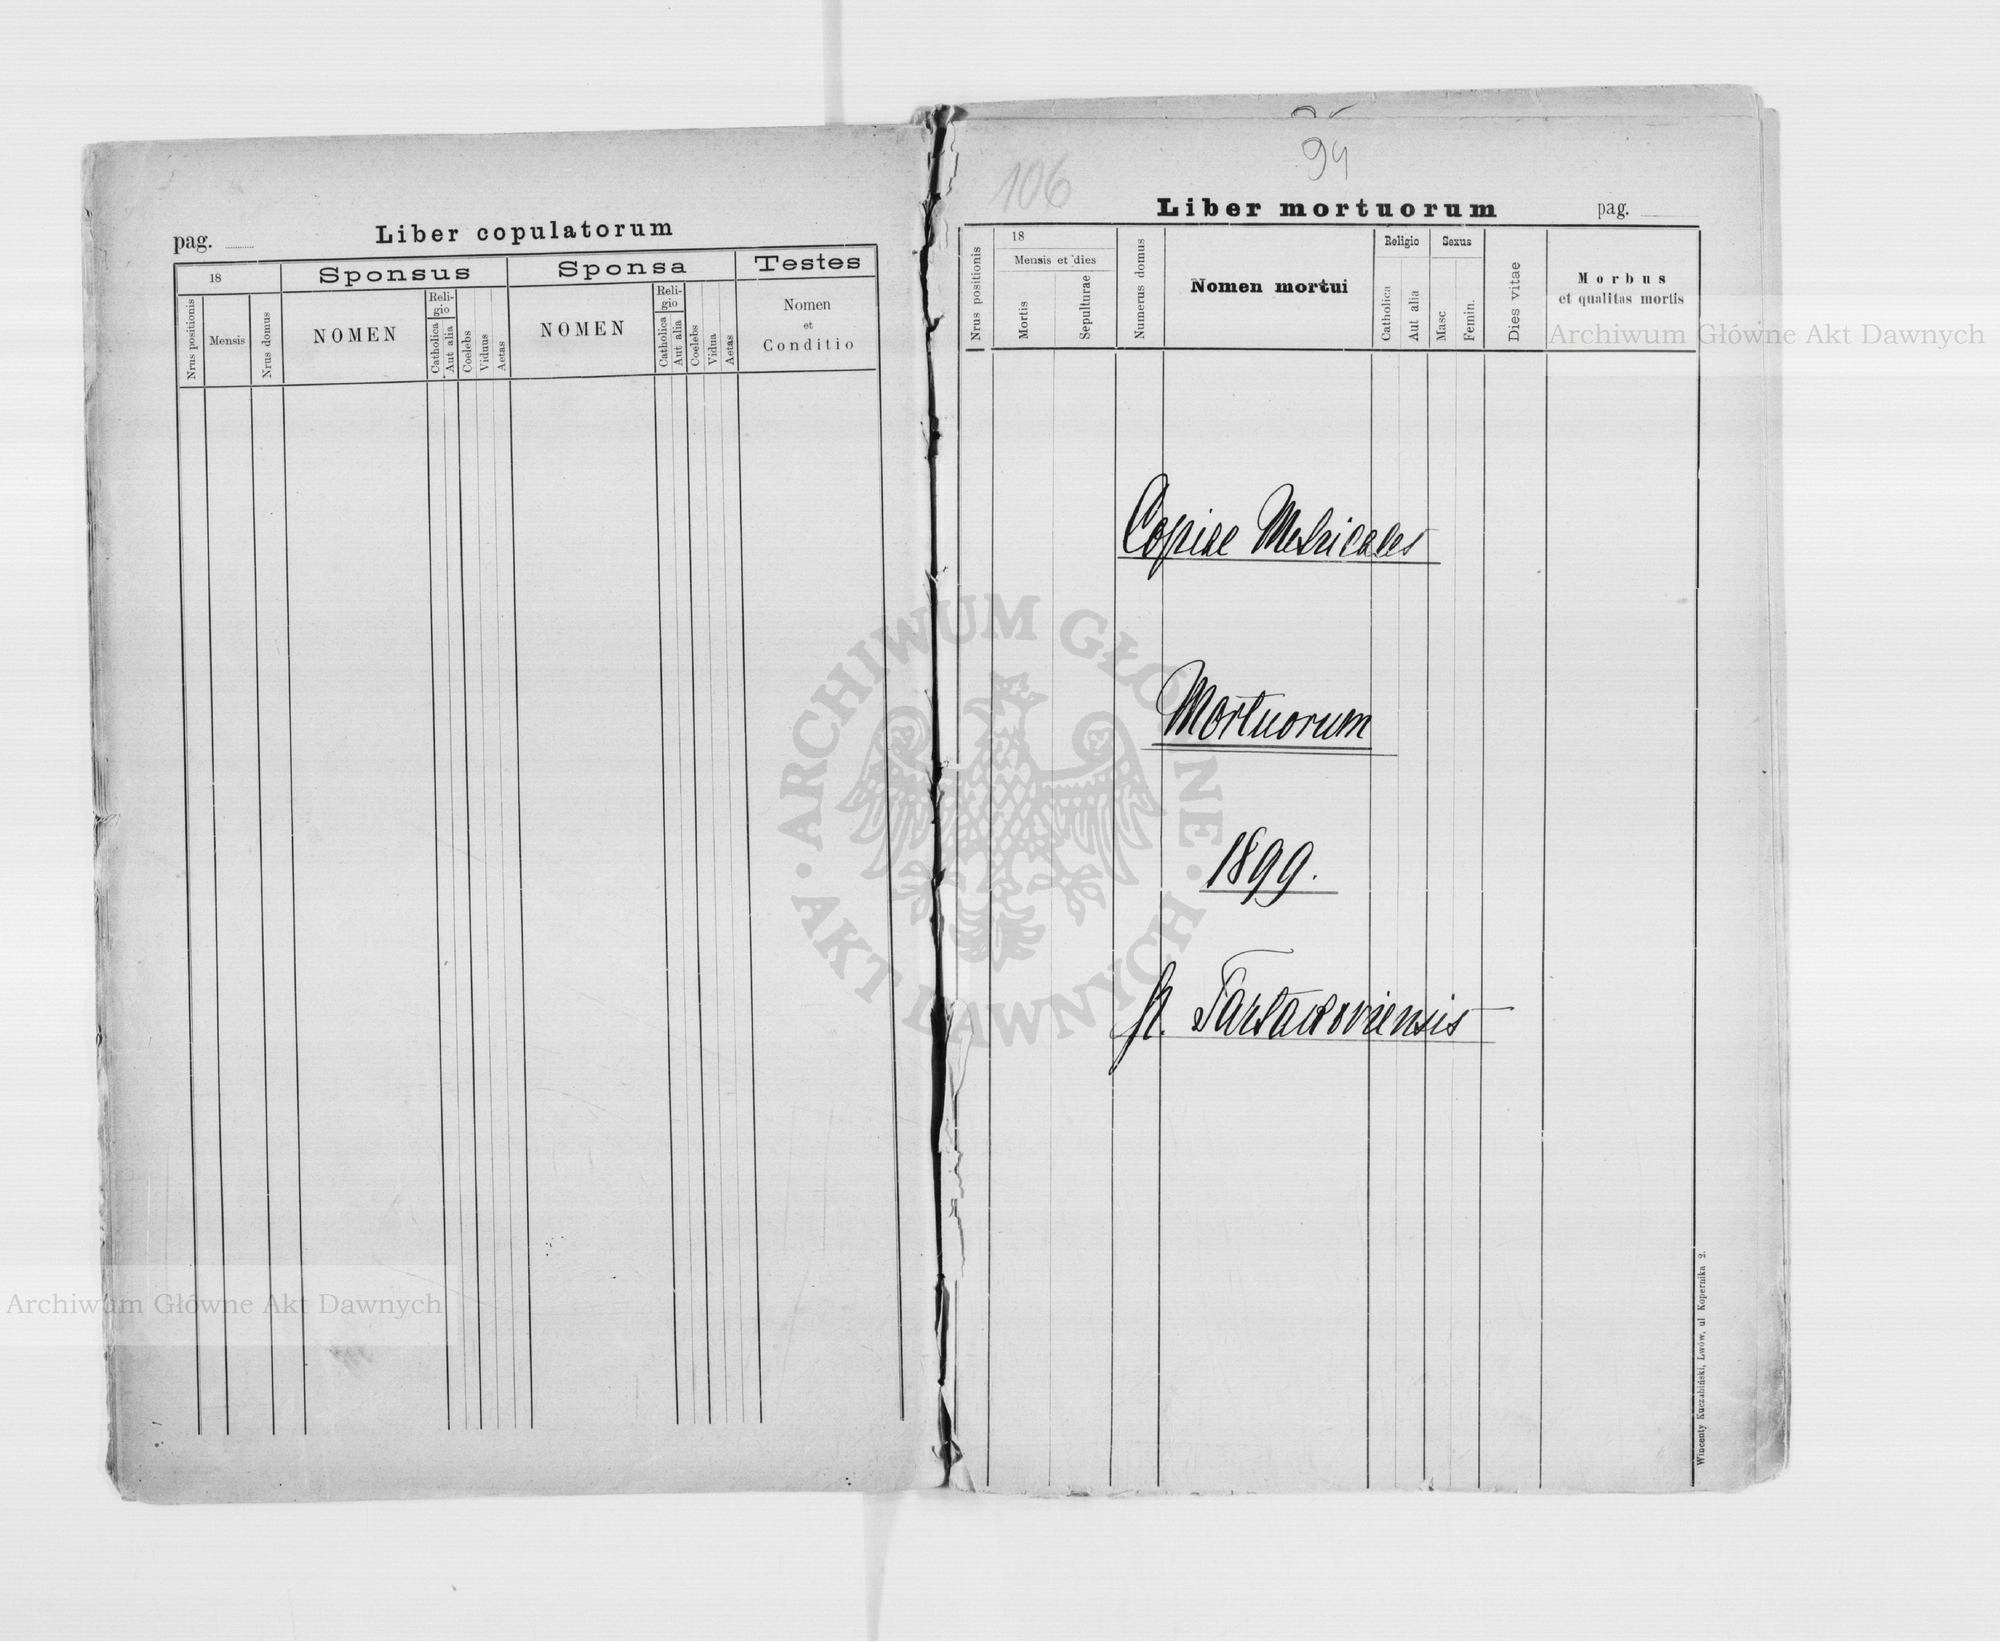 pag.
Liber copulatorum
18
Sponsus
Sponsa
Testes
Nrus positionis
Mensis
Nrus domus
NOMEN
Reli-
gio
Catholica
Aut alia
Coelebs
Viduus
Aetas
NOMEN
Reli-
gio
Catholica
Aut alia
Coelebs
Vidua
Aetas
Nomen
et
Conditio
106
94
Liber mortuorum
pag.
Nrus positionis
18
Mensis et dies
Mortis
Sepulturae
Numerus domus
Nomen mortui
Religio
Catholica
Aut alia
Sexus
Masc
Femin.
Dies vitae
Morbus
et qualitas mortis
Copiae Metricales
Mortuorum
1899.
Tartacoviensis
Wincenty Kuczabiński, Lwów, ul Kopernika 2.
Archiwum Główne Akt Dawnych
Archiwum Główne Akt Dawnych
ARCHIWUM GŁÓWNE
AKT DAWNYCH